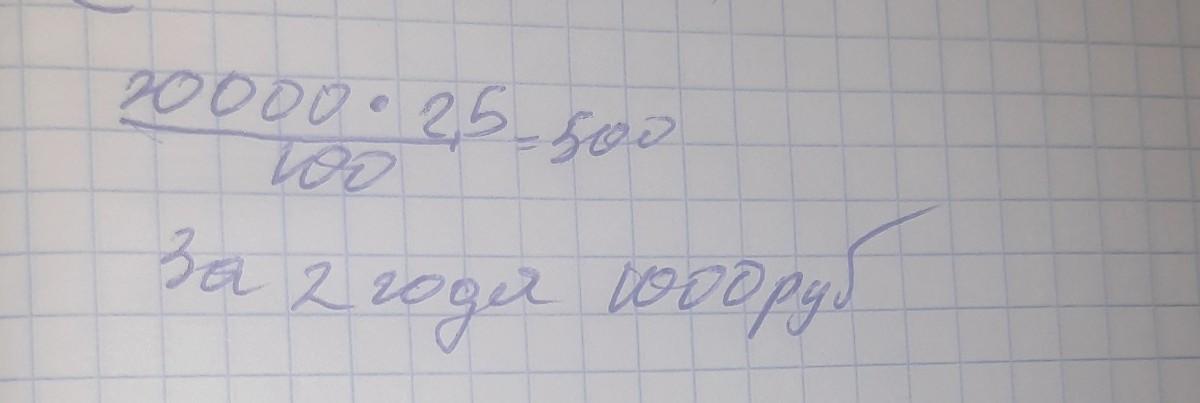 20000 · 2,5 = 500
100
За 2 года 1000 руб